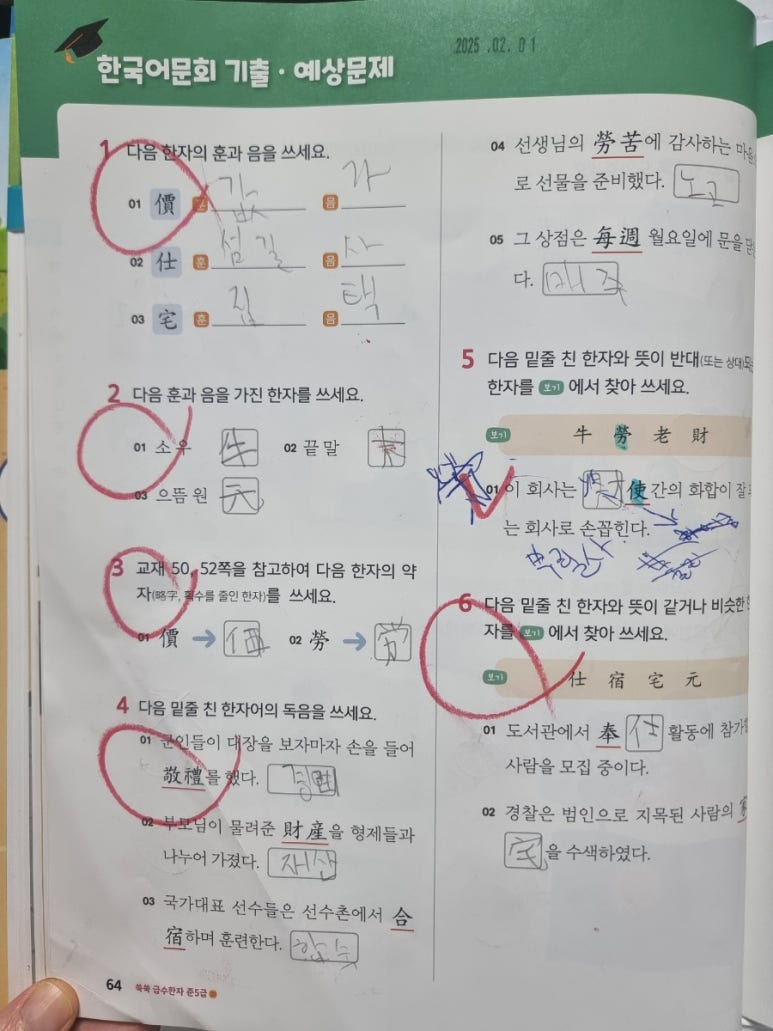 2025.02.01
한국어문회 기출·예상문제
1 다음 한자의 훈과 음을 쓰세요.
01 價 훈 값 음 가
02 仕 훈 섬길 음 사
03 宅 훈 집 음 택
2 다음 훈과 음을 가진 한자를 쓰세요.
01 소 우 牛 02 끝 말 末
03 으뜸 원 元
3 교재 50, 52쪽을 참고하여 다음 한자의 약
자(略字, 획수를 줄인 한자)를 쓰세요.
01 價 → 価 02 勞 → 労
4 다음 밑줄 친 한자어의 독음을 쓰세요.
01 군인들이 대장을 보자마자 손을 들어
敬禮를 했다. 경례
02 부모님이 물려준 財産을 형제들과
나누어 가졌다. 재산
03 국가대표 선수들은 선수촌에서 合
宿하며 훈련한다. 합숙
64 쑥쑥 급수한자 준5급
04 선생님의 勞苦에 감사하는
로 선물을 준비했다. 노고
05 그 상점은 每週 월요일에 문을
다. 매주
5 다음 밑줄 친 한자와 뜻이 반대(또는 상대)되는
한자를 보기 에서 찾아 쓰세요.
보기 牛 勞 老 財
01 이 회사는 使 간의 화합이 잘
는 회사로 손꼽힌다.
6 다음 밑줄 친 한자와 뜻이 같거나 비슷한 한
자를 보기 에서 찾아 쓰세요.
보기 仕 宿 宅 元
01 도서관에서 奉 仕 활동에 참가할
사람을 모집 중이다.
02 경찰은 범인으로 지목된 사람의
宅 을 수색하였다.